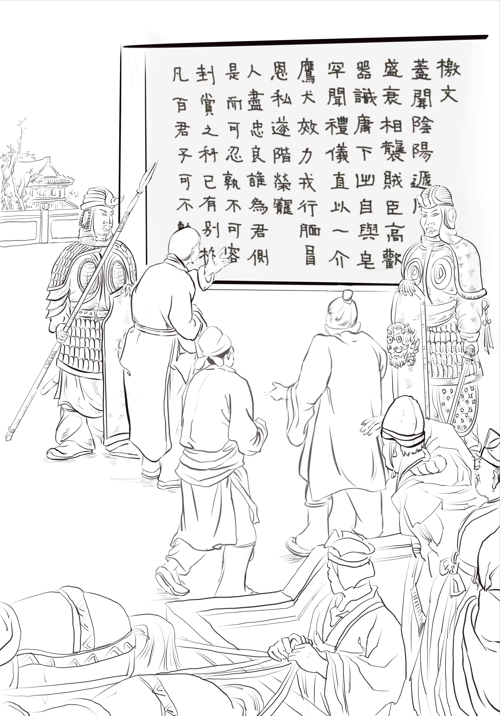 檄文
蓋聞陰陽遞
盛衰相襲賊臣高歡
器識庸下出自輿皂
罕聞禮儀直以一介
鷹犬效力戎行靦冒
恩私遂階榮寵
人盡忠良誰為君側
是而可忍孰不可容
封賞之科已有别
凡百君子可不